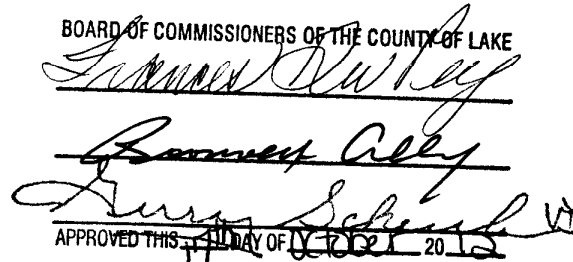 BOARD OF COMMISSIONERS OF THE COUNTY OF LAKE
Frances DuPey
Gerry Scheub
APPROVED THIS DAY OF October 2012